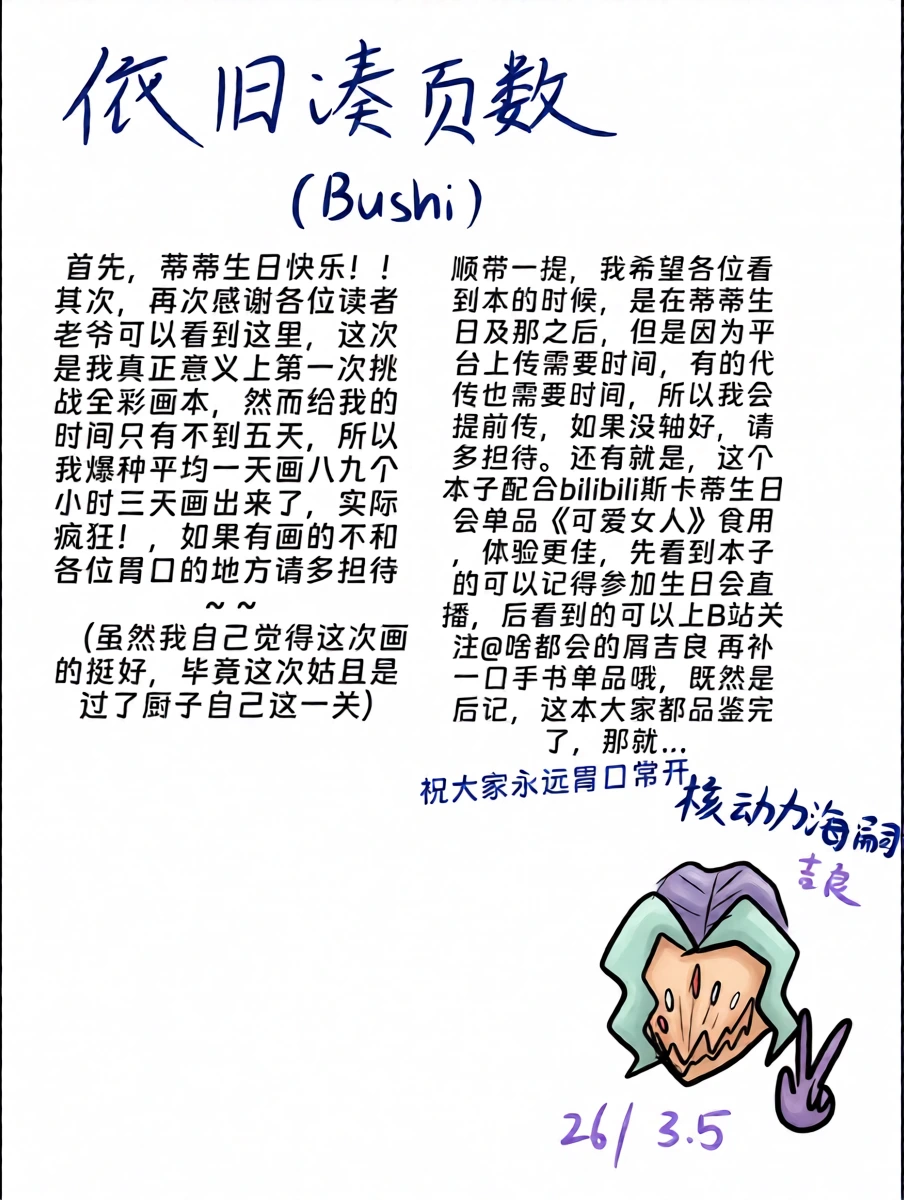 依旧凑页数
(Bushi)
首先，蒂蒂生日快乐！！
其次，再次感谢各位读者
老爷可以看到这里，这次
是我真正意义上第一次挑
战全彩画本，然而给我的
时间只有不到五天，所以
我爆种平均一天画八九个
小时三天画出来了，实际
疯狂！，如果有画的不和
各位胃口的地方请多担待
~ ~
（虽然我自己觉得这次画
的挺好，毕竟这次姑且是
过了厨子自己这一关）
顺带一提，我希望各位看
到本的时候，是在蒂蒂生
日及那之后，但是因为平
台上传需要时间，有的代
传也需要时间，所以我会
提前传，如果没轴好，请
多担待。还有就是，这个
本子配合bilibili斯卡蒂生日
会单品《可爱女人》食用
，体验更佳，先看到本子
的可以记得参加生日会直
播，后看到的可以上B站关
注@啥都会的屑吉良 再补
一口手书单品哦，既然是
后记，这本大家都品鉴完
了，那就...
祝大家永远胃口常开
核动力海嗣
吉良
26/ 3.5